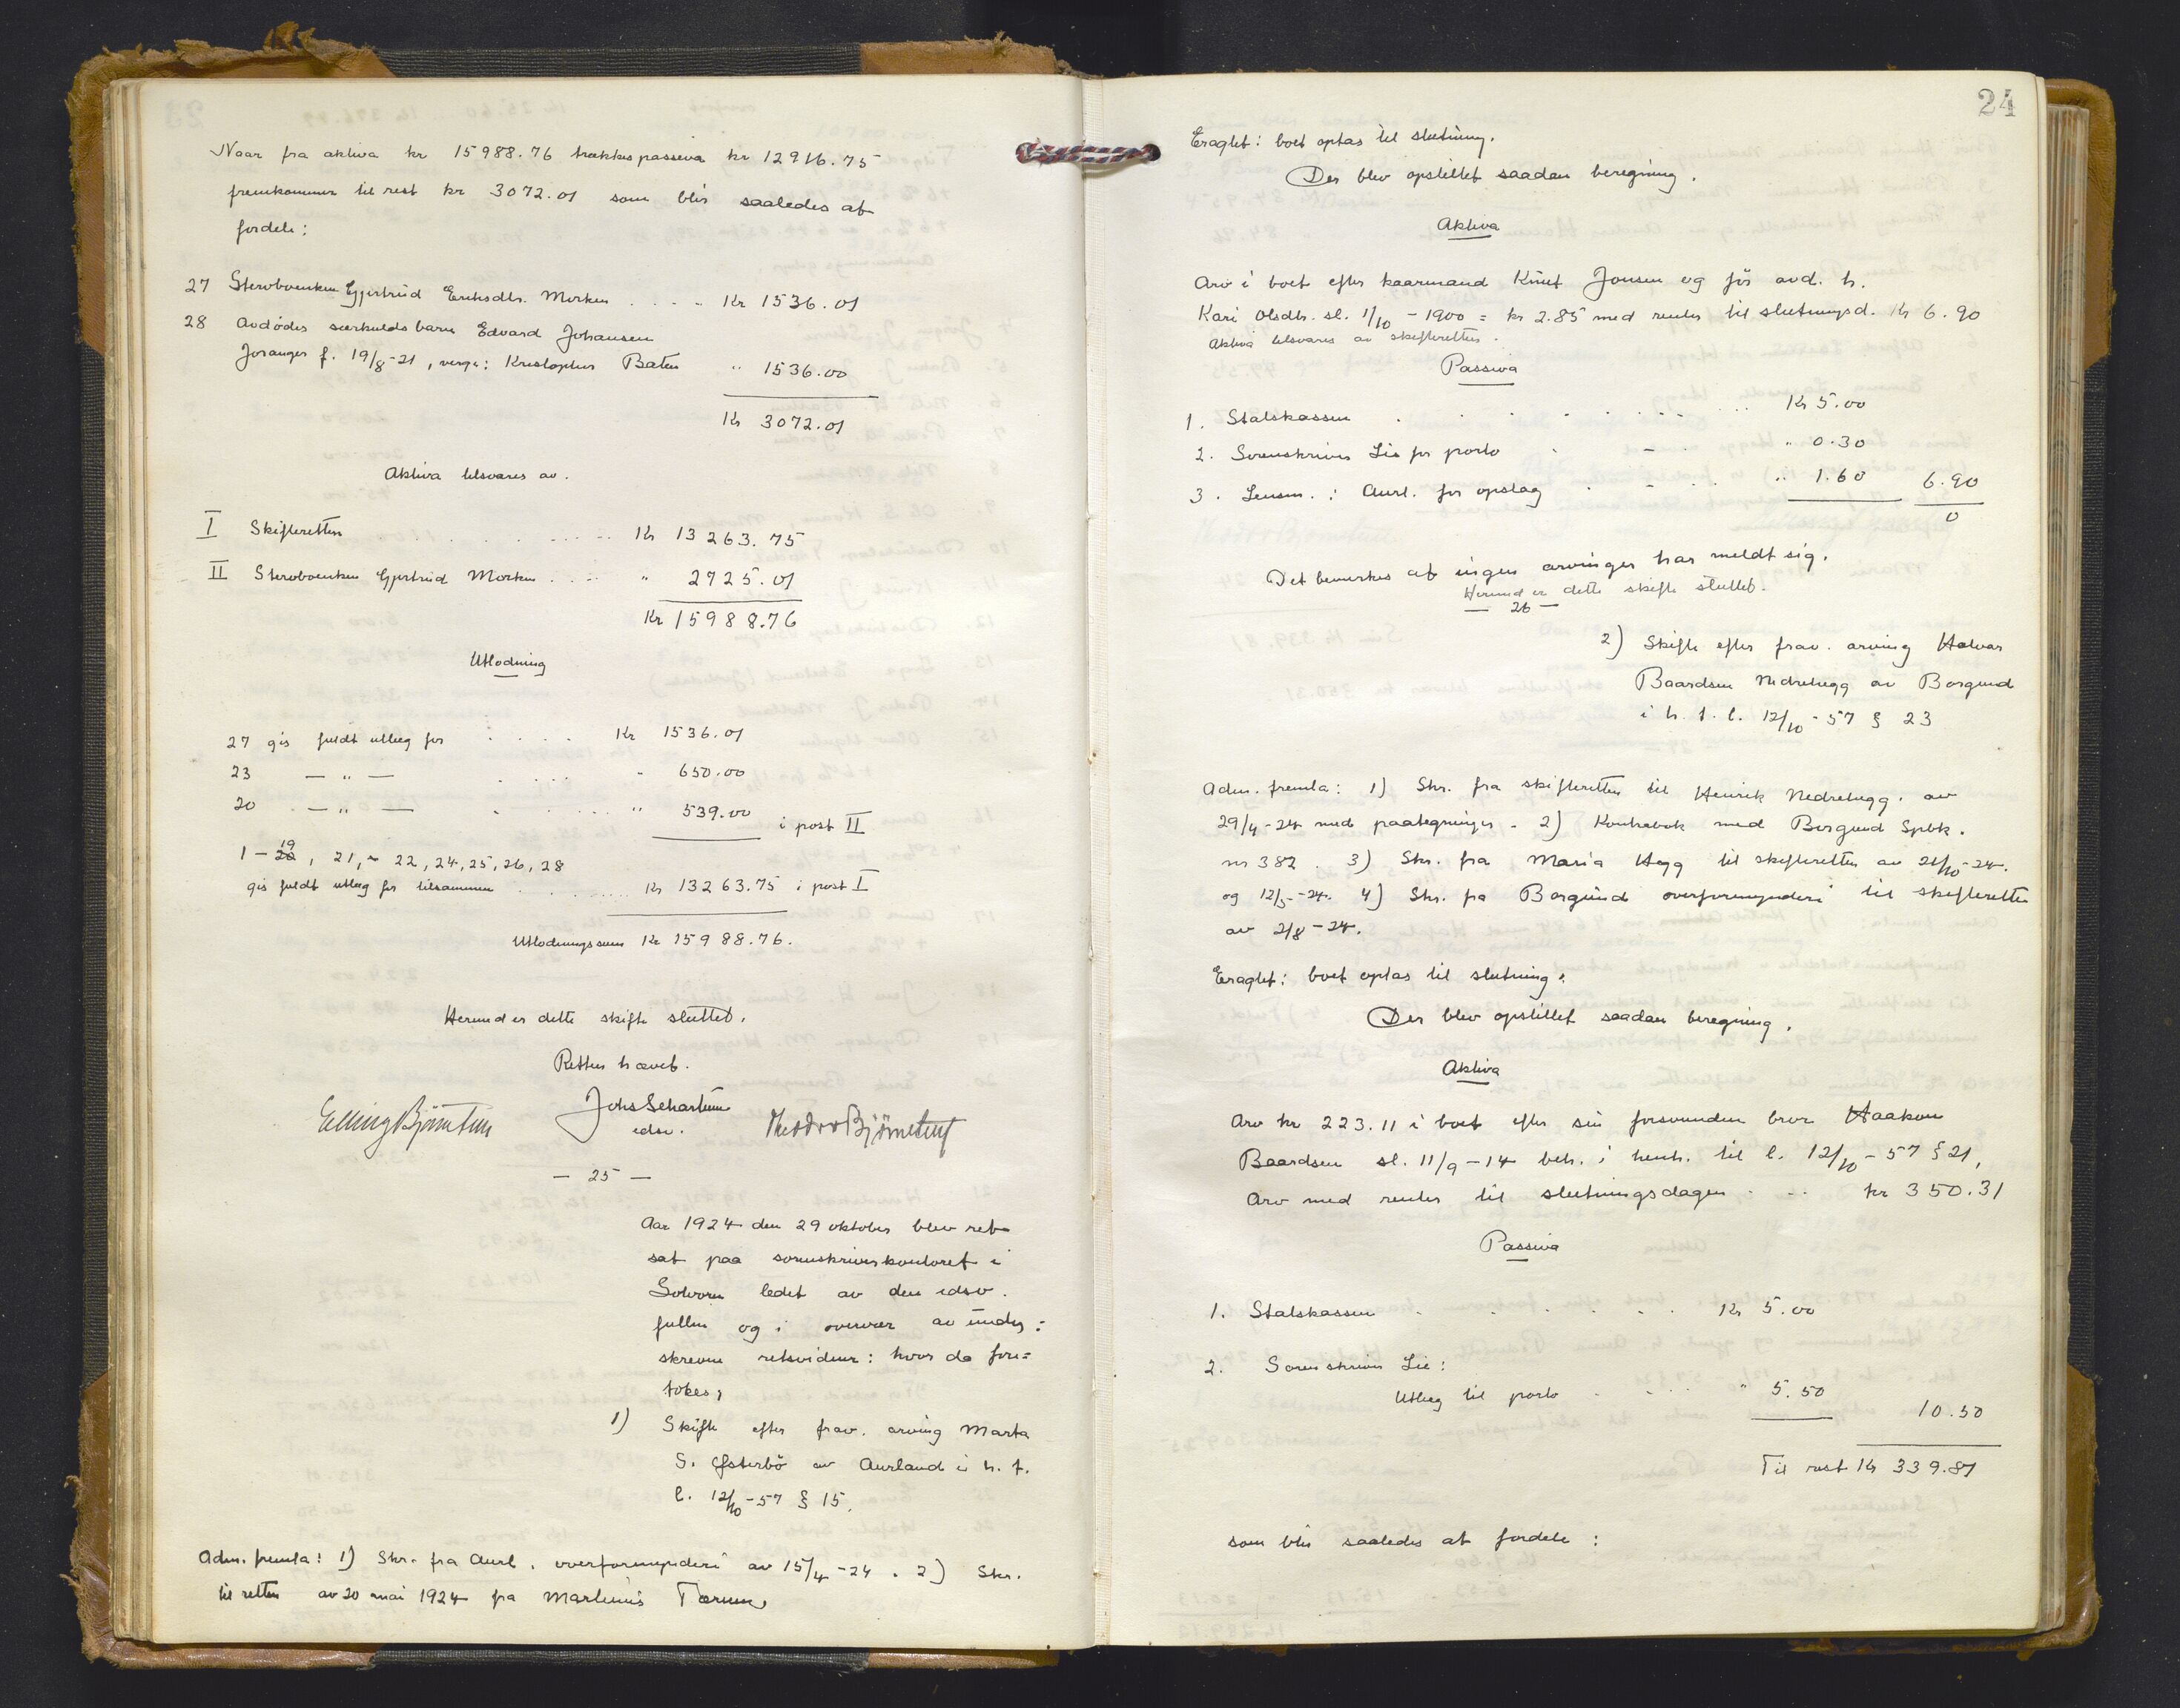 Naar fra aktiva kr 15988.76 trækkes passiva kr 12916.75
fremkommer til rest kr 3072.01 som blir saaledes at
fordele:
27 Stervboenken Gjertrud Eriksdtr. Morken . . . . Kr 1536.01
28 Avdødes særkulds barn Edvard Johansen
Joranger f. 19/8-21, verge: Kristopher Baten " 1536.00
Kr 3072.01
Aktiva tilsvares av.
I Skifteretten . . . . . . . . Kr 13263.75
II Stervboenken Gjertrud Morken . . . . " 2725.01
Kr 15988.76
Utlodning
27 gis fuldt utlæg for . . . . Kr 1536.01
23 — " — . . . . " 650.00
20 — " — . . . . " 539.00 i post II
1-19, 21, 22, 24, 25, 26, 28
gis fuldt utlæg for tilsammen . . . . . . Kr 13263.75 i post I
Utlodningssum Kr 15988.76.
Hermed er dette skifte sluttet.
Retten hævet.
Elling Bjørnetun Johs Schartum Theodor Bjørnetun
edsv.
— 25 —
Aar 1924 den 29 oktober blev ret
sat paa sorenskriverkontoret i
Solvorn ledet av den edsv.
fullm og i overvær av under:
skrevne retsvidner: hvor da fore=
tokes,
1) Skifte efter frav. arving Marta
S. Østerbø av Aurland i h. t.
l. 12/10-57 § 15.
Adm. fremla: 1) Skr. fra Aurl. overformynderi av 15/4-24. 2) Skr.
til retten av 20 mai 1924 fra Martinus Tærum
24
Eragtet: boet optas til slutning.
Der blev opstillet saadan beregning.
Aktiva
Arv i boet efter kaarmand Knut Jonsen og før avd. h.
Kari Olsdtr. sl. 1/10-1900 = kr 2.85 med renter til slutningsd. Kr 6.90
Aktiva tilsvares av skifteretten.
Passiva
1. Statskassen . . . . . . . . . Kr 5.00
2. Sorenskriver Lie for porto . — . " 0.30
3. Lensm. i Aurl. for opslag . . . . " 1.60 6.90
0
Det bemerkes at ingen arvinger har meldt sig.
Hermed er dette skifte sluttet.
— 26 —
2) Skifte efter frav. arving Halvar
Baardsen Nedrehegg av Borgund
i h. t. l. 12/10-57 § 23
Adm. fremla: 1) Skr. fra skifteretten til Henrik Nedrehegg. av
29/4-24 med paategninger. 2) Kontrabok med Borgund Spbk.
nr 382. 3) Skr. fra Maria Hegg til skifteretten av 21/10-24.
og 12/5-24. 4) Skr. fra Borgund overformynderi til skifteretten
av 2/8-24.
Eragtet: boet optas til slutning.
Der blev opstillet saadan beregning.
Aktiva
Arv kr 223.11 i boet efter sin forsvunden bror Haakon
Baardsen sl. 11/9-14 beh. i henh. til l. 12/10-57 § 21,
Arv med renter til slutningsdagen . . . kr 350.31
Passiva
1. Statskassen . . . . . . Kr 5.00
2. Sorenskriver Lie:
Utlæg til porto . . . . . " 5.50 10.50
Til rest Kr 339.81
som blir saaledes at fordele: